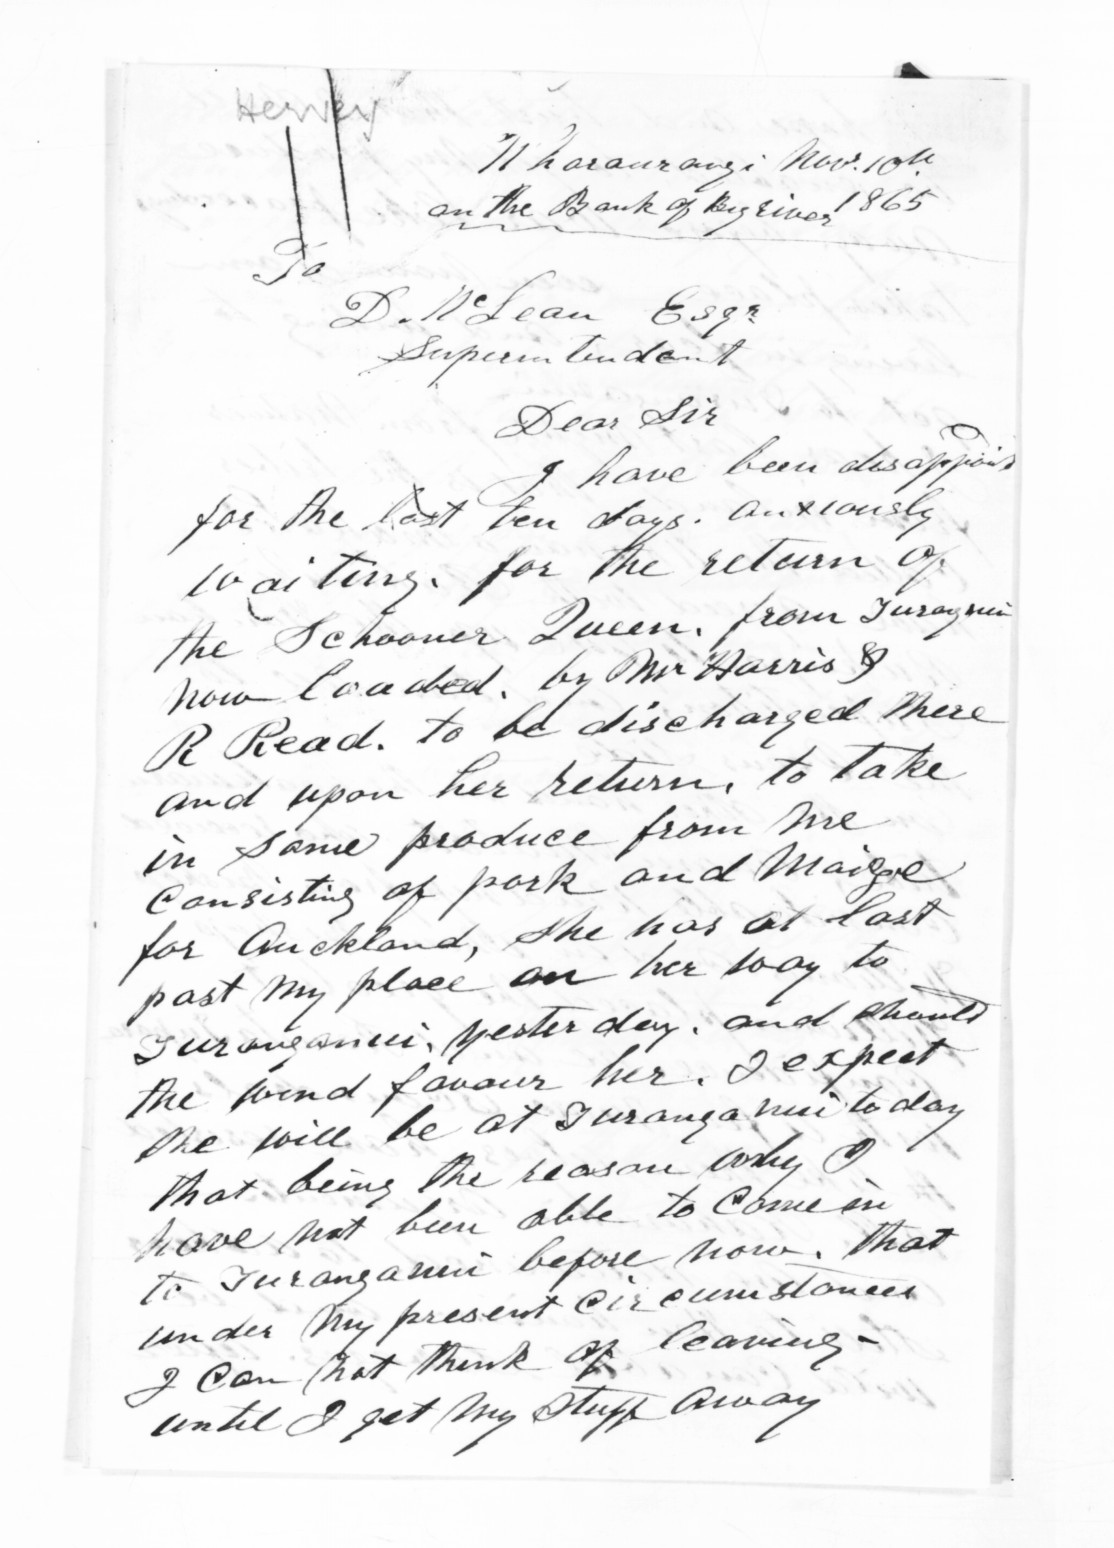 Hervey
Wharaurangi Novr. 10th.
on the Bank of Big River 1865
To
D. McLean Esqr.
Superintendent
Dear Sir
I have been disappoint
for the last ten days. anxiously
waiting. for the return of
the Schooner Queen. from Turanganui
now loaded. by Mr Harris &
R Read. to be discharged there
and upon her return. to take
in some produce from me
Consisting of pork and Maize
for Auckland, she has at last
past my place on her way to
Turanganui. yesterday. and should
the wind favour her. I expect
she will be at Turanganui to day
that being the reason why I
have not been able to Come in
to Turanganui before now. that
under my present Circumstances
I Can not think of leaving-
until I get my stuff away